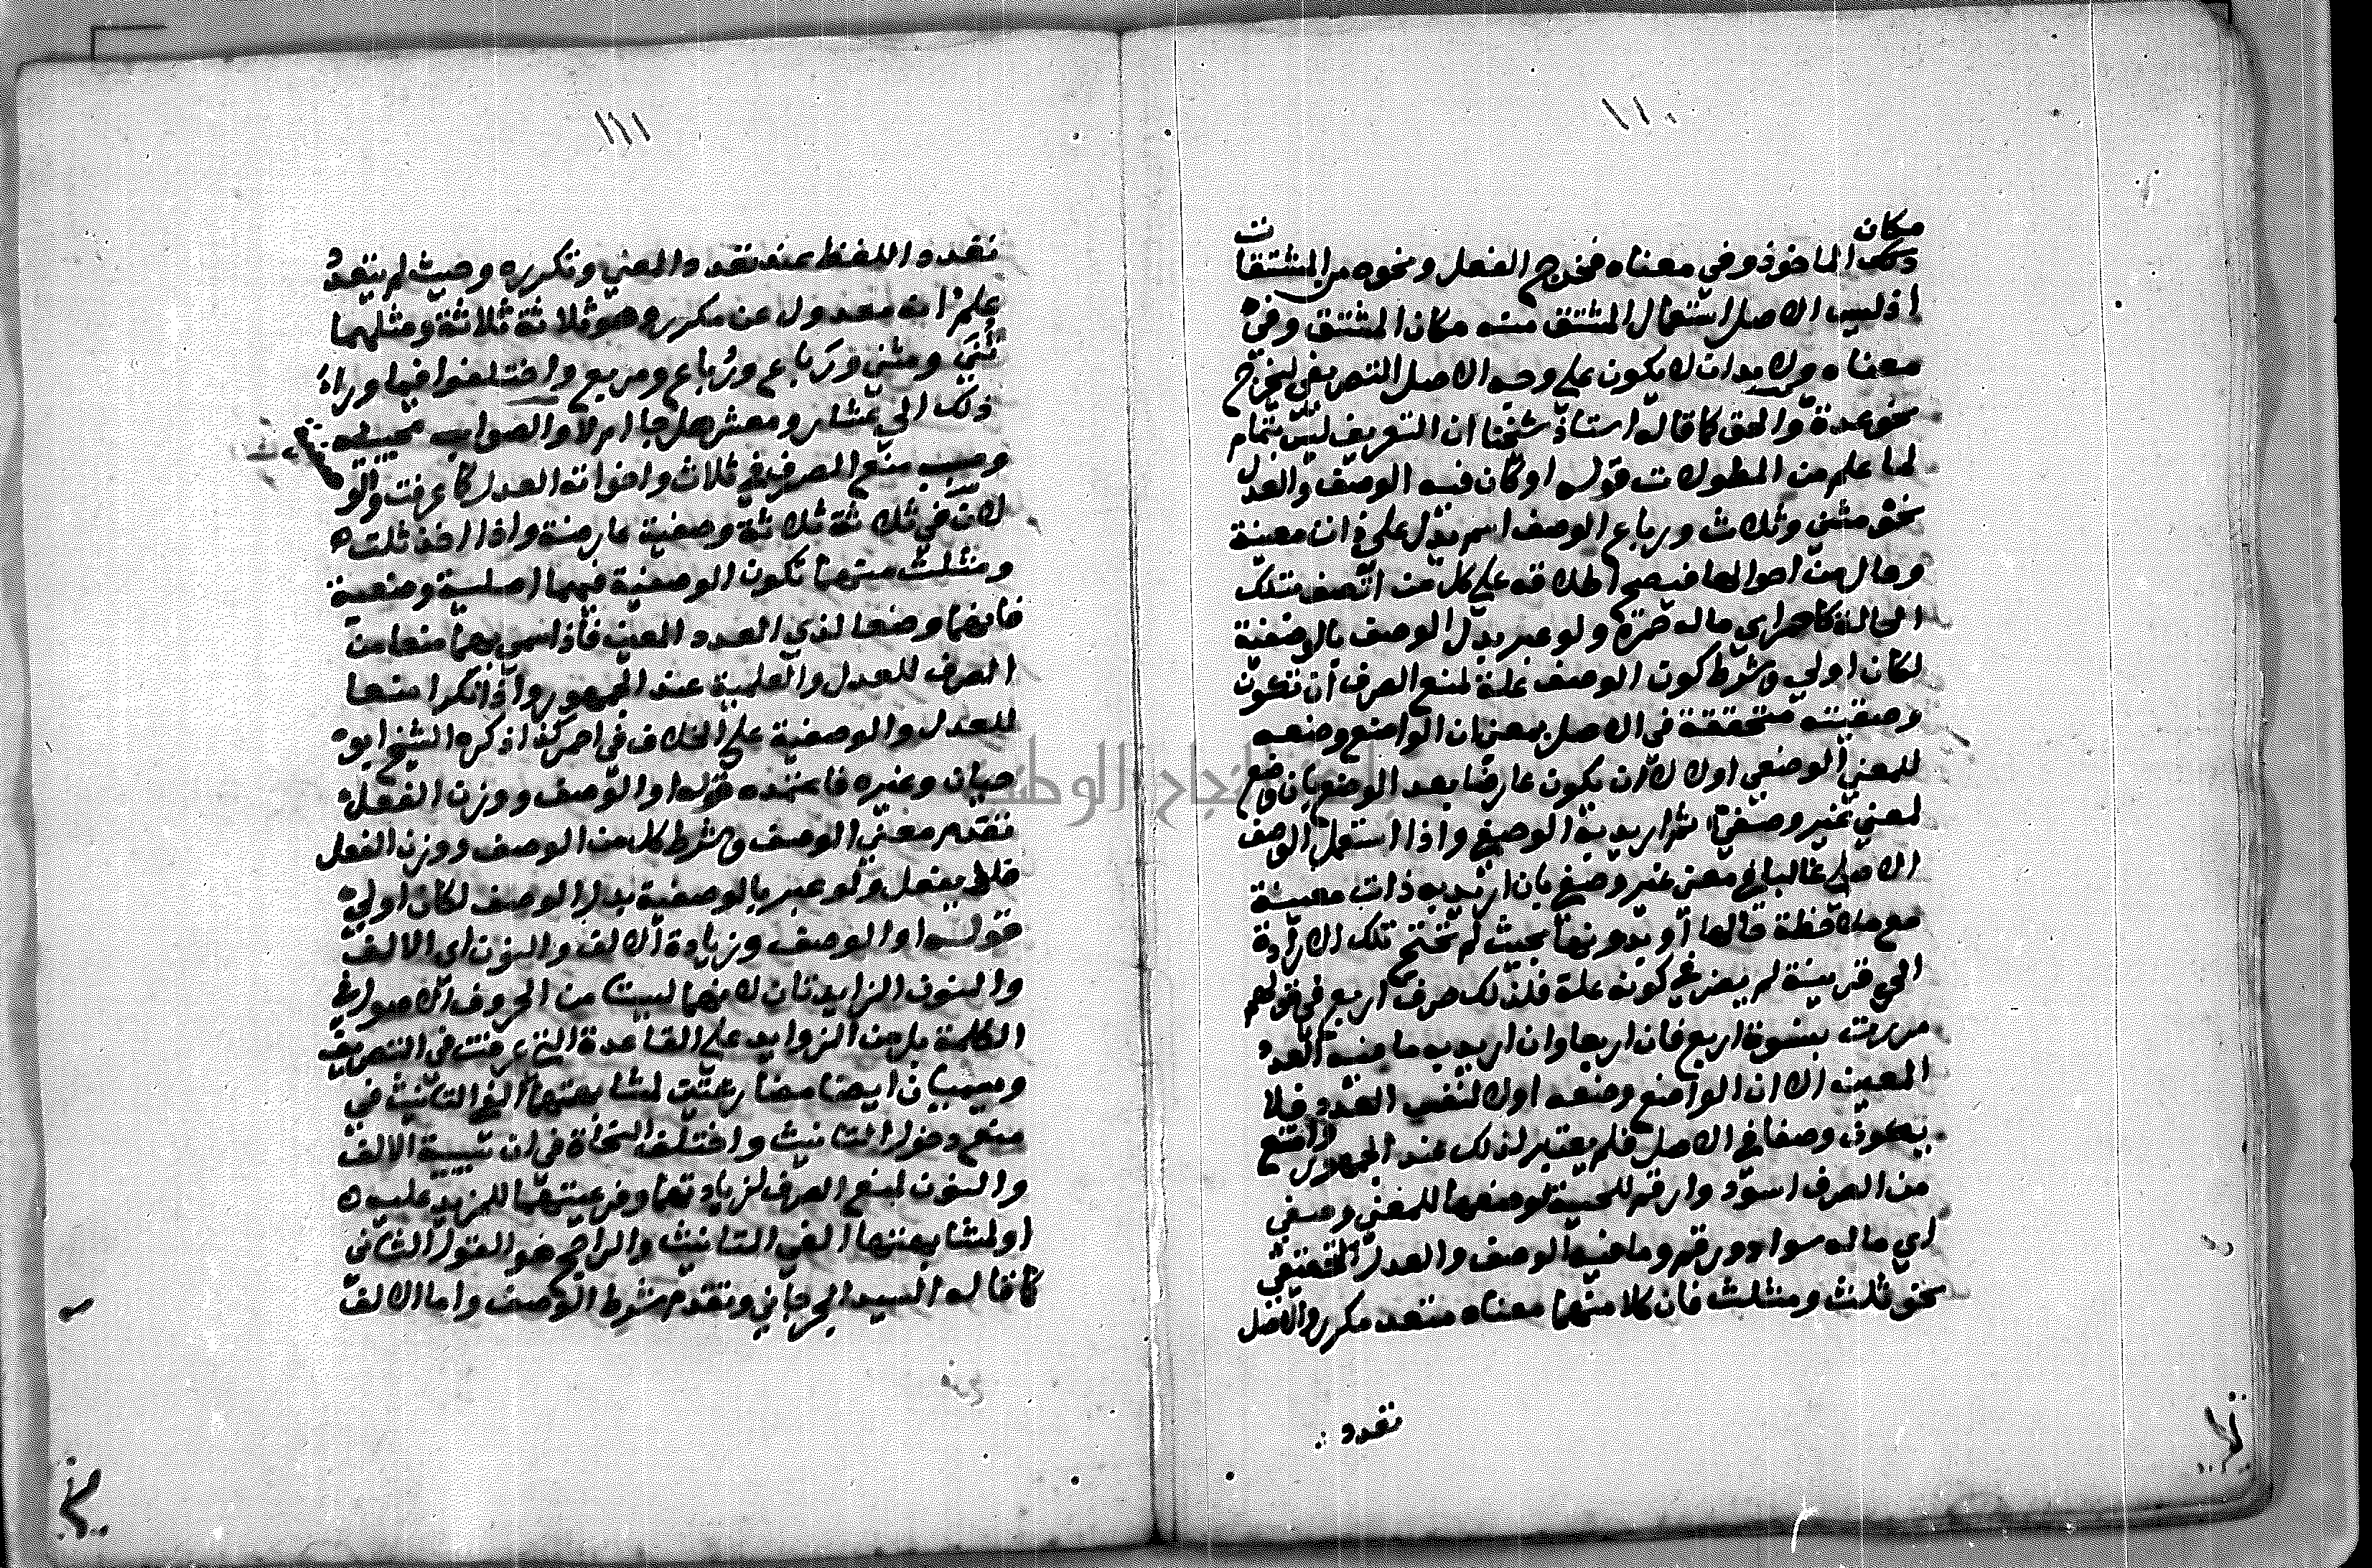 ١١٠
مكان
ذلك الماخوذ وفي معناه فخرج الفعل ونحوه من المشتقات
اذ ليس الاصل استعمال المشتق منه مكان المشتق وفي
معناه ولا بد ان لا يكون على وجه الاصل التصريفي ليخرج
نحو عدة والحق كما قاله استاذ شيخنا ان التعريف ليس بتمام
لما علم من المطولات قوله او كان فيه الوصف والعدل
نحو مثنى وثلاث ورباع الوصف اسم يدل على ذات معينة
وحال من احوالها فيصح اطلاقه على كل من اتصف بتلك
الحالة كاحمر اي ماله حمرة ولو عبر بدل الوصف بالوصفية
لكان اولى وشرط كون الوصف علة لمنع الصرف ان تكون
وصفيته متحققة في الاصل بمعنى ان الواضع وضعه
للمعنى الوصفي اولا لا ان يكون عارضا بعد الوضع بان وضع
لمعنى غير وصفي ثم اريد به الوصفي واذا استعمل الوصف
الاصلي غالبا في معنى غير وصفي بان اريد به ذات معينة
مع ملاحظة حالها او بدونها بحيث لم تحتج تلك الارادة
الى قرينة لم يضر في كونه علة فلذلك صرف اربع في قولهم
مررت بنسوة اربع فان اربعا وان اريد به ما فيه العدد
المعين الا ان الواضع وضعه اولا لنفس العدد فلا
يكون وصفا في الاصل فلم يعتبر لذلك عند الجمهور وامتنع
من الصرف اسود وارقم للحية لوضعهما للمعنى وصفي
اي ماله سواد ورقم وما فيه الوصف والعدل التحقيقي
نحو ثلاث ومثلث فان كلا منهما معناه متعدد مكرر والاصل
تعدد
١١١
تعدد اللفظ عند تعدد المعنى وتكرره وحيث لم يتعدد
علم انه معدول عن مكرر وهو ثلاثة ثلاثة ومثلهما
ثنى ومثنى ورباع ومربع واختلفوا فيما وراء
ذلك الى عشار ومعشر هل جا ام لا والصواب مجيئه
وسبب منع الصرف في ثلاث واخواته العدل كما عرفت
لان في ثلاثة ثلاثة وصفية عارضة واذا اخذ ثلاث
ومثلث منهما تكون الوصفية فيهما اصلية وضعية
فانهما وضعا لذي العدد المعين فاذا سمي بهما منعا من
الصرف للعدل والعلمية عند الجمهور واذا نكرا منعا
للعدل والوصفية على الخلاف في احمر كذا ذكره الشيخ ابو
حيان وغيره فاعتمده قوله او الوصف ووزن الفعل
تقدم معنى الوصف وشرط كل من الوصف ووزن الفعل
ولو عبر بالوصفية بدل الوصف لكان اولى
قوله او الوصف وزيادة الالف والنون اي الالف
والنون الزايدتان لانهما ليستا من الحروف الاصول في
الكلمة بل من الزوايد على القاعدة التي عرفت في التصريف
ويسميان ايضا مضارعتين لمشابهتهما الفي التانيث في
منع دخول التانيث واختلف النحاة في ان سببية الالف
والنون لمنع الصرف لزيادتهما وفرعيتهما للمزيد عليه
او لمشابهتهما الفي التانيث والراجح هو القول الثاني
كما قاله السيد الجرجاني وتقدم شرط الوصف واما الالف